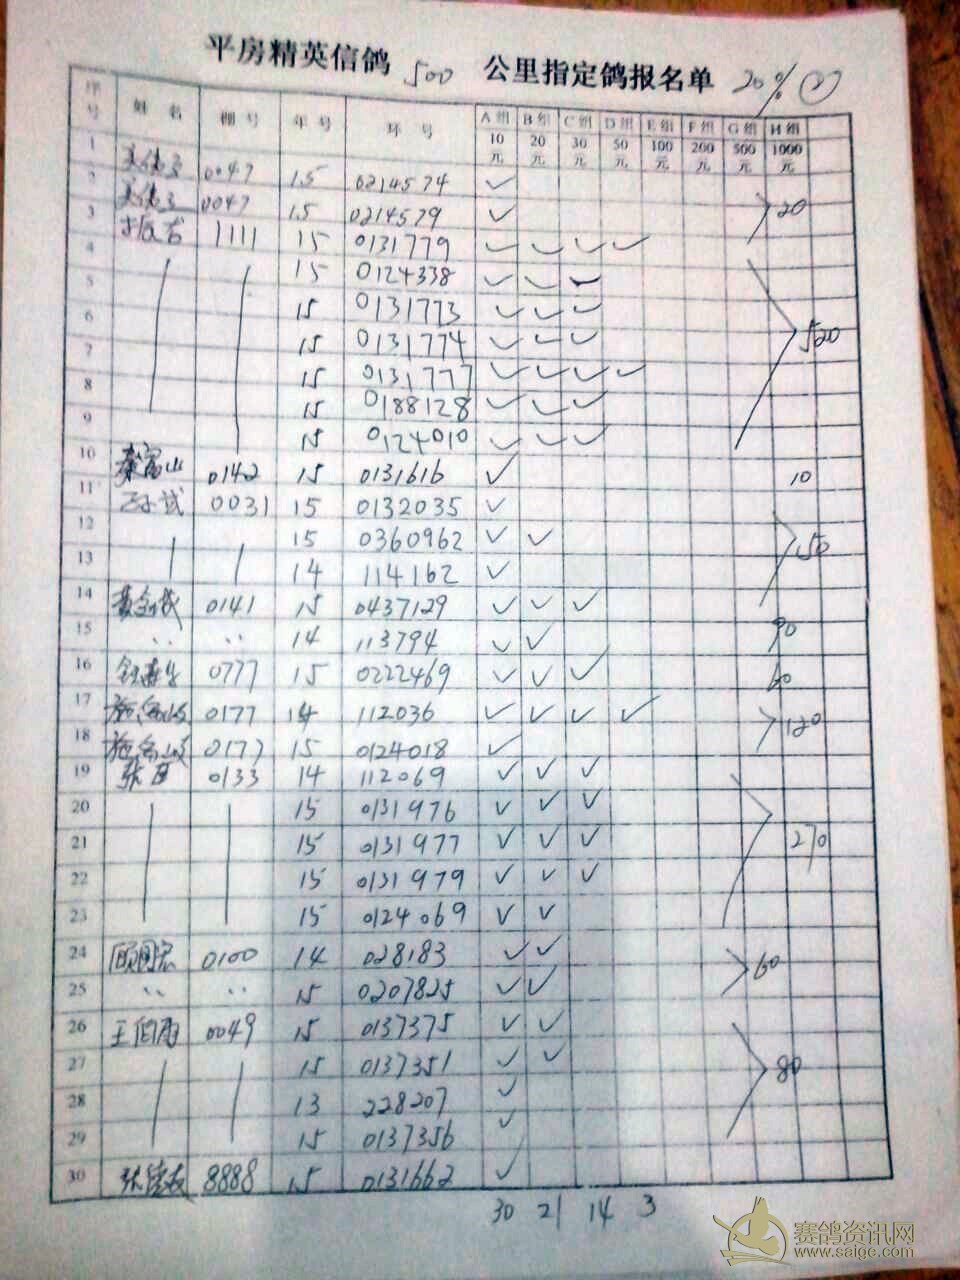 平房精英信鸽 500 公里指定鸽报名单 20% ②
序号 姓名 棚号 年号 环号 A组 B组 C组 D组 E组 F组 G组 H组
10元 20元 30元 50元 100元 200元 500元 1000元
1 0047 15 0214574 ✓
2 0047 15 0214579 ✓ 20
3 1111 15 0131779 ✓ ✓ ✓ ✓
4 15 0124338 ✓ ✓ ✓
5 15 0131773 ✓ ✓ ✓
6 15 0131774 ✓ ✓ ✓ 520
7 15 0131777 ✓ ✓ ✓ ✓
8 15 0188128 ✓ ✓ ✓
9 15 0124010 ✓ ✓ ✓
10 秦富山 0142 15 0131616 ✓ 10
11 0031 15 0132035 ✓
12 15 0360962 ✓ ✓ 50
13 14 114162 ✓
14 0141 15 0437129 ✓ ✓ ✓
15 〃 〃 14 113794 ✓ ✓ 90
16 0777 15 0222469 ✓ ✓ ✓ 60
17 0177 14 112036 ✓ ✓ ✓ ✓ 120
18 0177 15 0124018 ✓
19 0133 14 112069 ✓ ✓ ✓
20 15 0131976 ✓ ✓ ✓
21 15 0131977 ✓ ✓ ✓ 270
22 15 0131979 ✓ ✓ ✓
23 15 0124069 ✓ ✓
24 顾国宏 0100 14 028183 ✓ ✓
25 〃 〃 15 0207825 ✓ ✓ 60
26 王伯雨 0049 15 0137375 ✓ ✓
27 15 0137351 ✓ ✓ 80
28 13 228207 ✓
29 15 0137356 ✓
30 8888 15 0131662 ✓
30 21 14 3
赛鸽资讯网
www.saigc.com